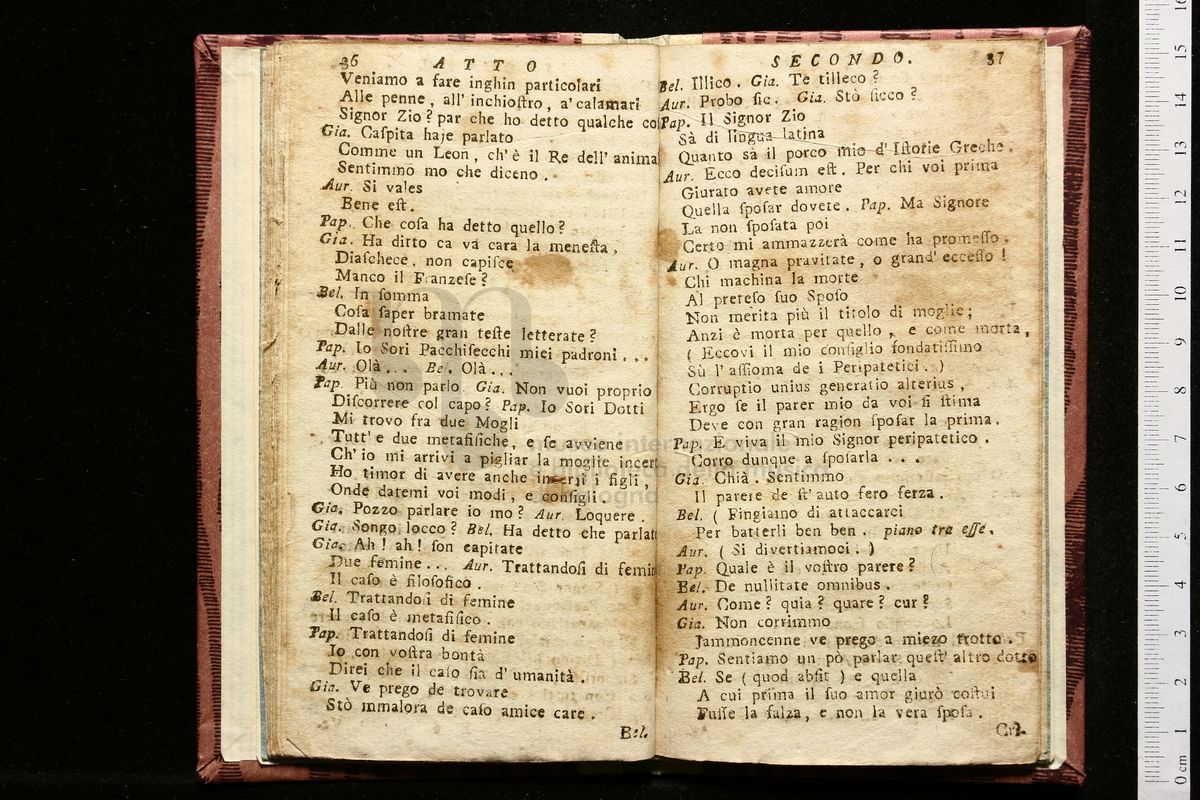 36 ATTO
Veniamo a fare inghin particolari
Alle penne, all' inchioſtro, a' calamari
Signor Zio? par che ho detto qualche co
Gia. Caſpita haje parlato
Comme un Leon, ch' è il Re dell' anima
Sentimmo mo che diceno.
Aur. Si vales
Bene eſt.
Pap. Che coſa ha detto quello?
Gia. Ha ditto ca va cara la meneſta,
Diaſchece, non capiſce
Manco il Franzeſe?
Bel. In ſomma
Coſa ſaper bramate
Dalle noſtre gran teſte letterate?
Pap. Io Sori Pacchiſecchi miei padroni...
Aur. Olà... Be. Olà...
Pap. Più non parlo. Gia. Non vuoi proprio
Diſcorrere col capo? Pap. Io Sori Dotti
Mi trovo fra due Mogli
Tutt' e due metafiſiche, e ſe avviene
Ch' io mi arrivi a pigliar la moglie incert
Ho timor di avere anche incerti i figli,
Onde datemi voi modi, e conſigli.
Gia. Pozzo parlare io mo? Aur. Loquere.
Gia. Songo locco? Bel. Ha detto che parlat
Gia. Ah! ah! ſon capitate
Due femine... Aur. Trattandoſi di femin
Il caſo è filoſofico.
Bel. Trattandoſi di femine
Il caſo è metafiſico.
Pap. Trattandoſi di femine
Io con voſtra bontà
Direi che il caſo ſia d' umanità.
Gia. Ve prego de trovare
Stò mmalora de caſo amice care.
Bel.
SECONDO. 37
Bel. Illico. Gia. Te tilleco?
Aur. Probo ſic. Gia. Stò ſicco?
Pap. Il Signor Zio
Sà di lingua latina
Quanto sà il porco mio d' Iſtorie Greche.
Aur. Ecco deciſum eſt. Per chi voi prima
Giurato avete amore
Quella ſpoſar dovete. Pap. Ma Signore
La non ſpoſata poi
Certo mi ammazzerà come ha promeſſo.
Aur. O magna pravitate, o grand' ecceſſo!
Chi machina la morte
Al preteſo ſuo Spoſo
Non merita più il titolo di moglie;
Anzi è morta per quello, e come morta,
( Eccovi il mio conſiglio fondatiſſimo
Sù l' aſſioma de i Peripatetici. )
Corruptio unius generatio alterius,
Ergo ſe il parer mio da voi ſi ſtima
Deve con gran ragion ſpoſar la prima.
Pap. E viva il mio Signor peripatetico.
Corro dunque a ſpoſarla...
Gia. Chià. Sentimmo
Il parere de ſt' auto fero ferza.
Bel. ( Fingiamo di attaccarci
Per batterli ben ben. piano tra eſſe.
Aur. ( Si divertiamoci. )
Pap. Quale è il voſtro parere?
Bel. De nullitate omnibus.
Aur. Come? quia? quare? cur?
Gia. Non corrimmo
Jammoncenne ve prego a miezo trotto.
Pap. Sentiamo un pò parlar queſt' altro dotto
Bel. Se ( quod abſit ) e quella
A cui prima il ſuo amor giurò coſtui
Fuſſe la falza, e non la vera ſpoſa.